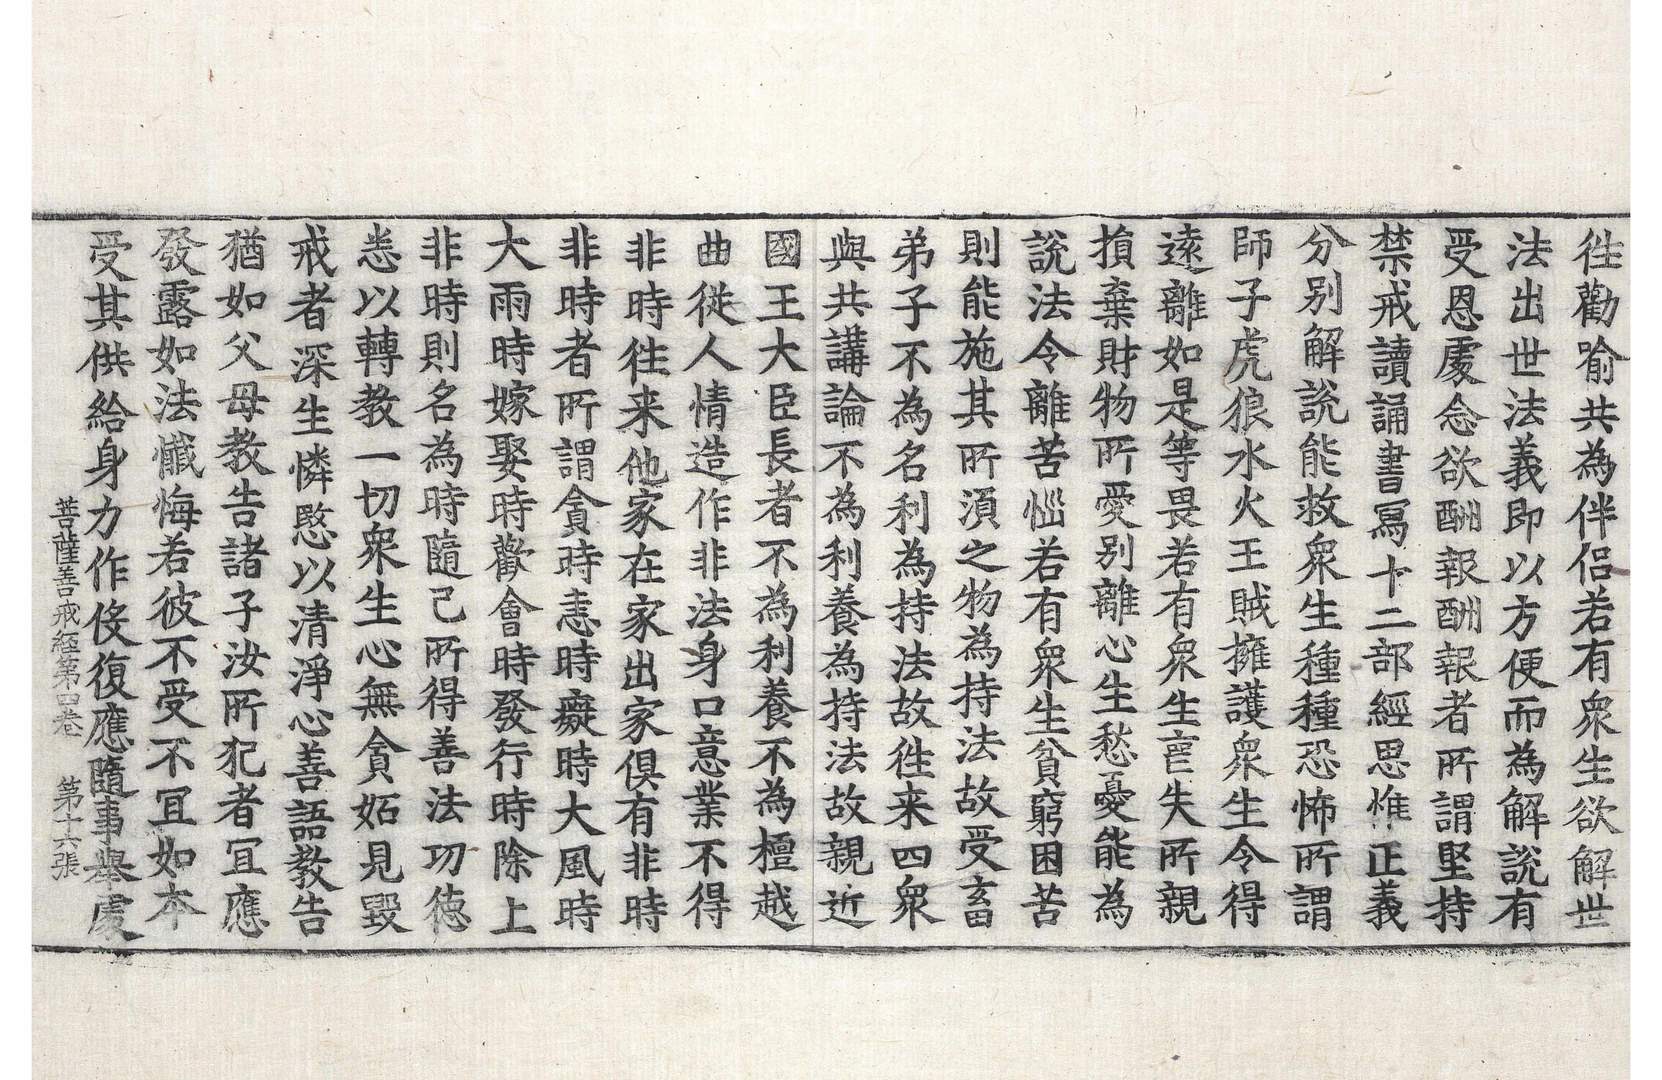 徃勸喻共為伴侶若有衆生欲解世
法出世法義即以方便而為解説有
受恩處念欲酬報酬報者所謂堅持
禁戒讀誦書寫十二部經思惟正義
分别解説能救衆生種種恐怖所謂
師子虎狼水火王賊擁護衆生令得
逺離如是等畏若有衆生喪失所親
損棄財物所愛别離心生愁憂能為
説法令離苦惱若有衆生貧窮困苦
則能施其所湏之物為持法故受畜
弟子不為名利為持法故徃来四衆
與共講論不為利養為持法故親近
國王大臣長者不為利養不為檀越
曲從人情造作非法身口意業不得
非時徃来他家在家出家俱有非時
非時者所謂貪時恚時癡時大風時
大雨時嫁娶時歡會時發行時除上
非時則名為時隨己所得善法功徳
悉以轉教一切衆生心無貪妬見毀
戒者深生憐愍以清淨心善語教告
猶如父母教告諸子汝所犯者冝應
發露如法懺悔若彼不受不冝如本
受其供給身力作役復應隨事舉處
菩薩善戒経第四卷　第十六張